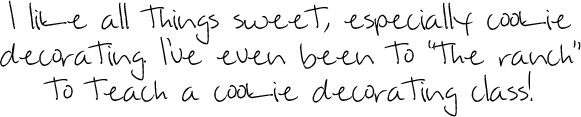 I like all things sweet, especially cookie
decorating. I've even been to "the ranch"
to teach a cookie decorating class!